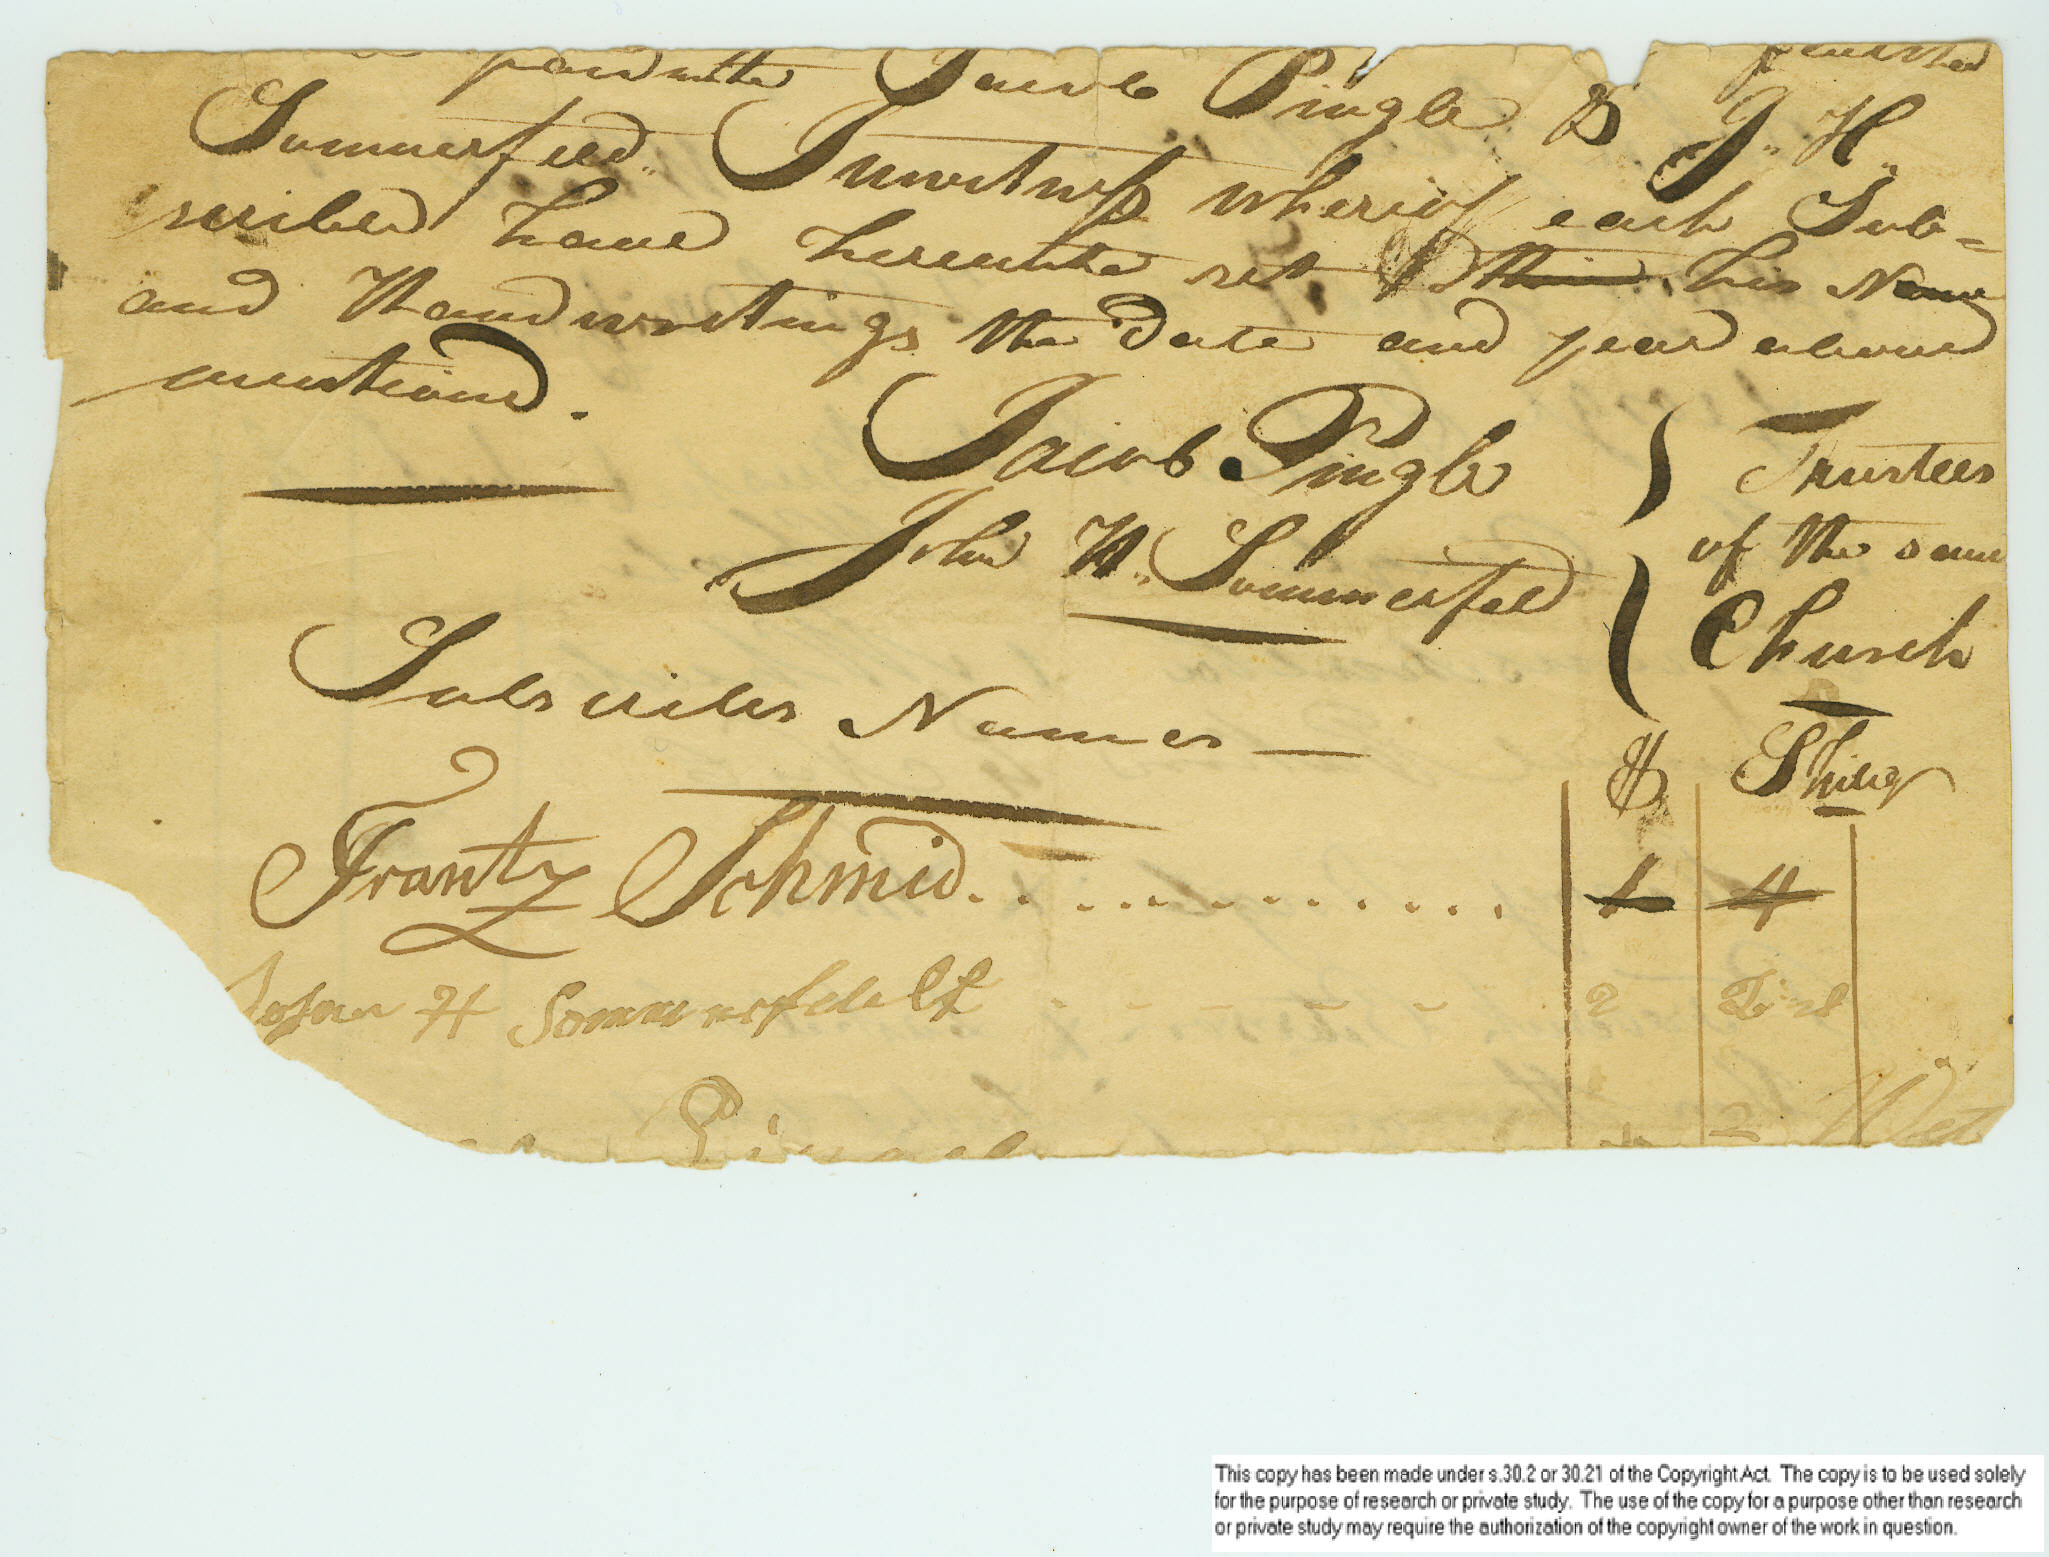 paid unto Jacob Pingle & J. H.
Summerfeld. In witness whereof each Sub=
scriber have hereunto set this his Name
and Handwritings the Date and year above
mentiond.
Jacob Pingle } Trustees
John H. Summerfeld } of the same
Church
Subscribers Names —
$ Shilg
Frantz Schmid. . . . . . . . . . . . . 1 4
Johan H Sommerfeldt - - - - - - 2
2 Wet
This copy has been made under s.30.2 or 30.21 of the Copyright Act. The copy is to be used solely
for the purpose of research or private study. The use of the copy for a purpose other than research
or private study may require the authorization of the copyright owner of the work in question.